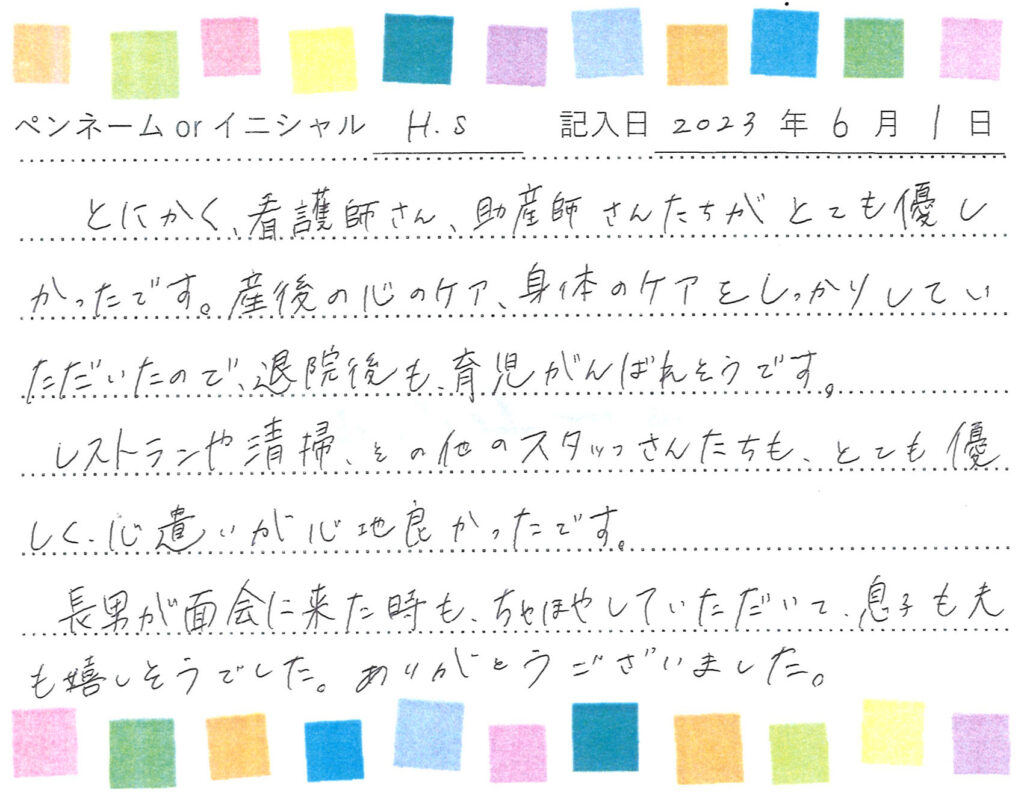 ペンネーム or イニシャル H.S 記入日 2023 年 6 月 1 日
とにかく、看護師さん、助産師さんたちがとても優し
かったです。産後の心のケア、身体のケアをしっかりしてい
ただいたので、退院後も、育児がんばれそうです。
レストランや清掃、その他のスタッフさんたちも、とても優
しく、心遣いが心地良かったです。
長男が面会に来た時も、ちやほやしていただいて、息子も夫
も嬉しそうでした。ありがとうございました。